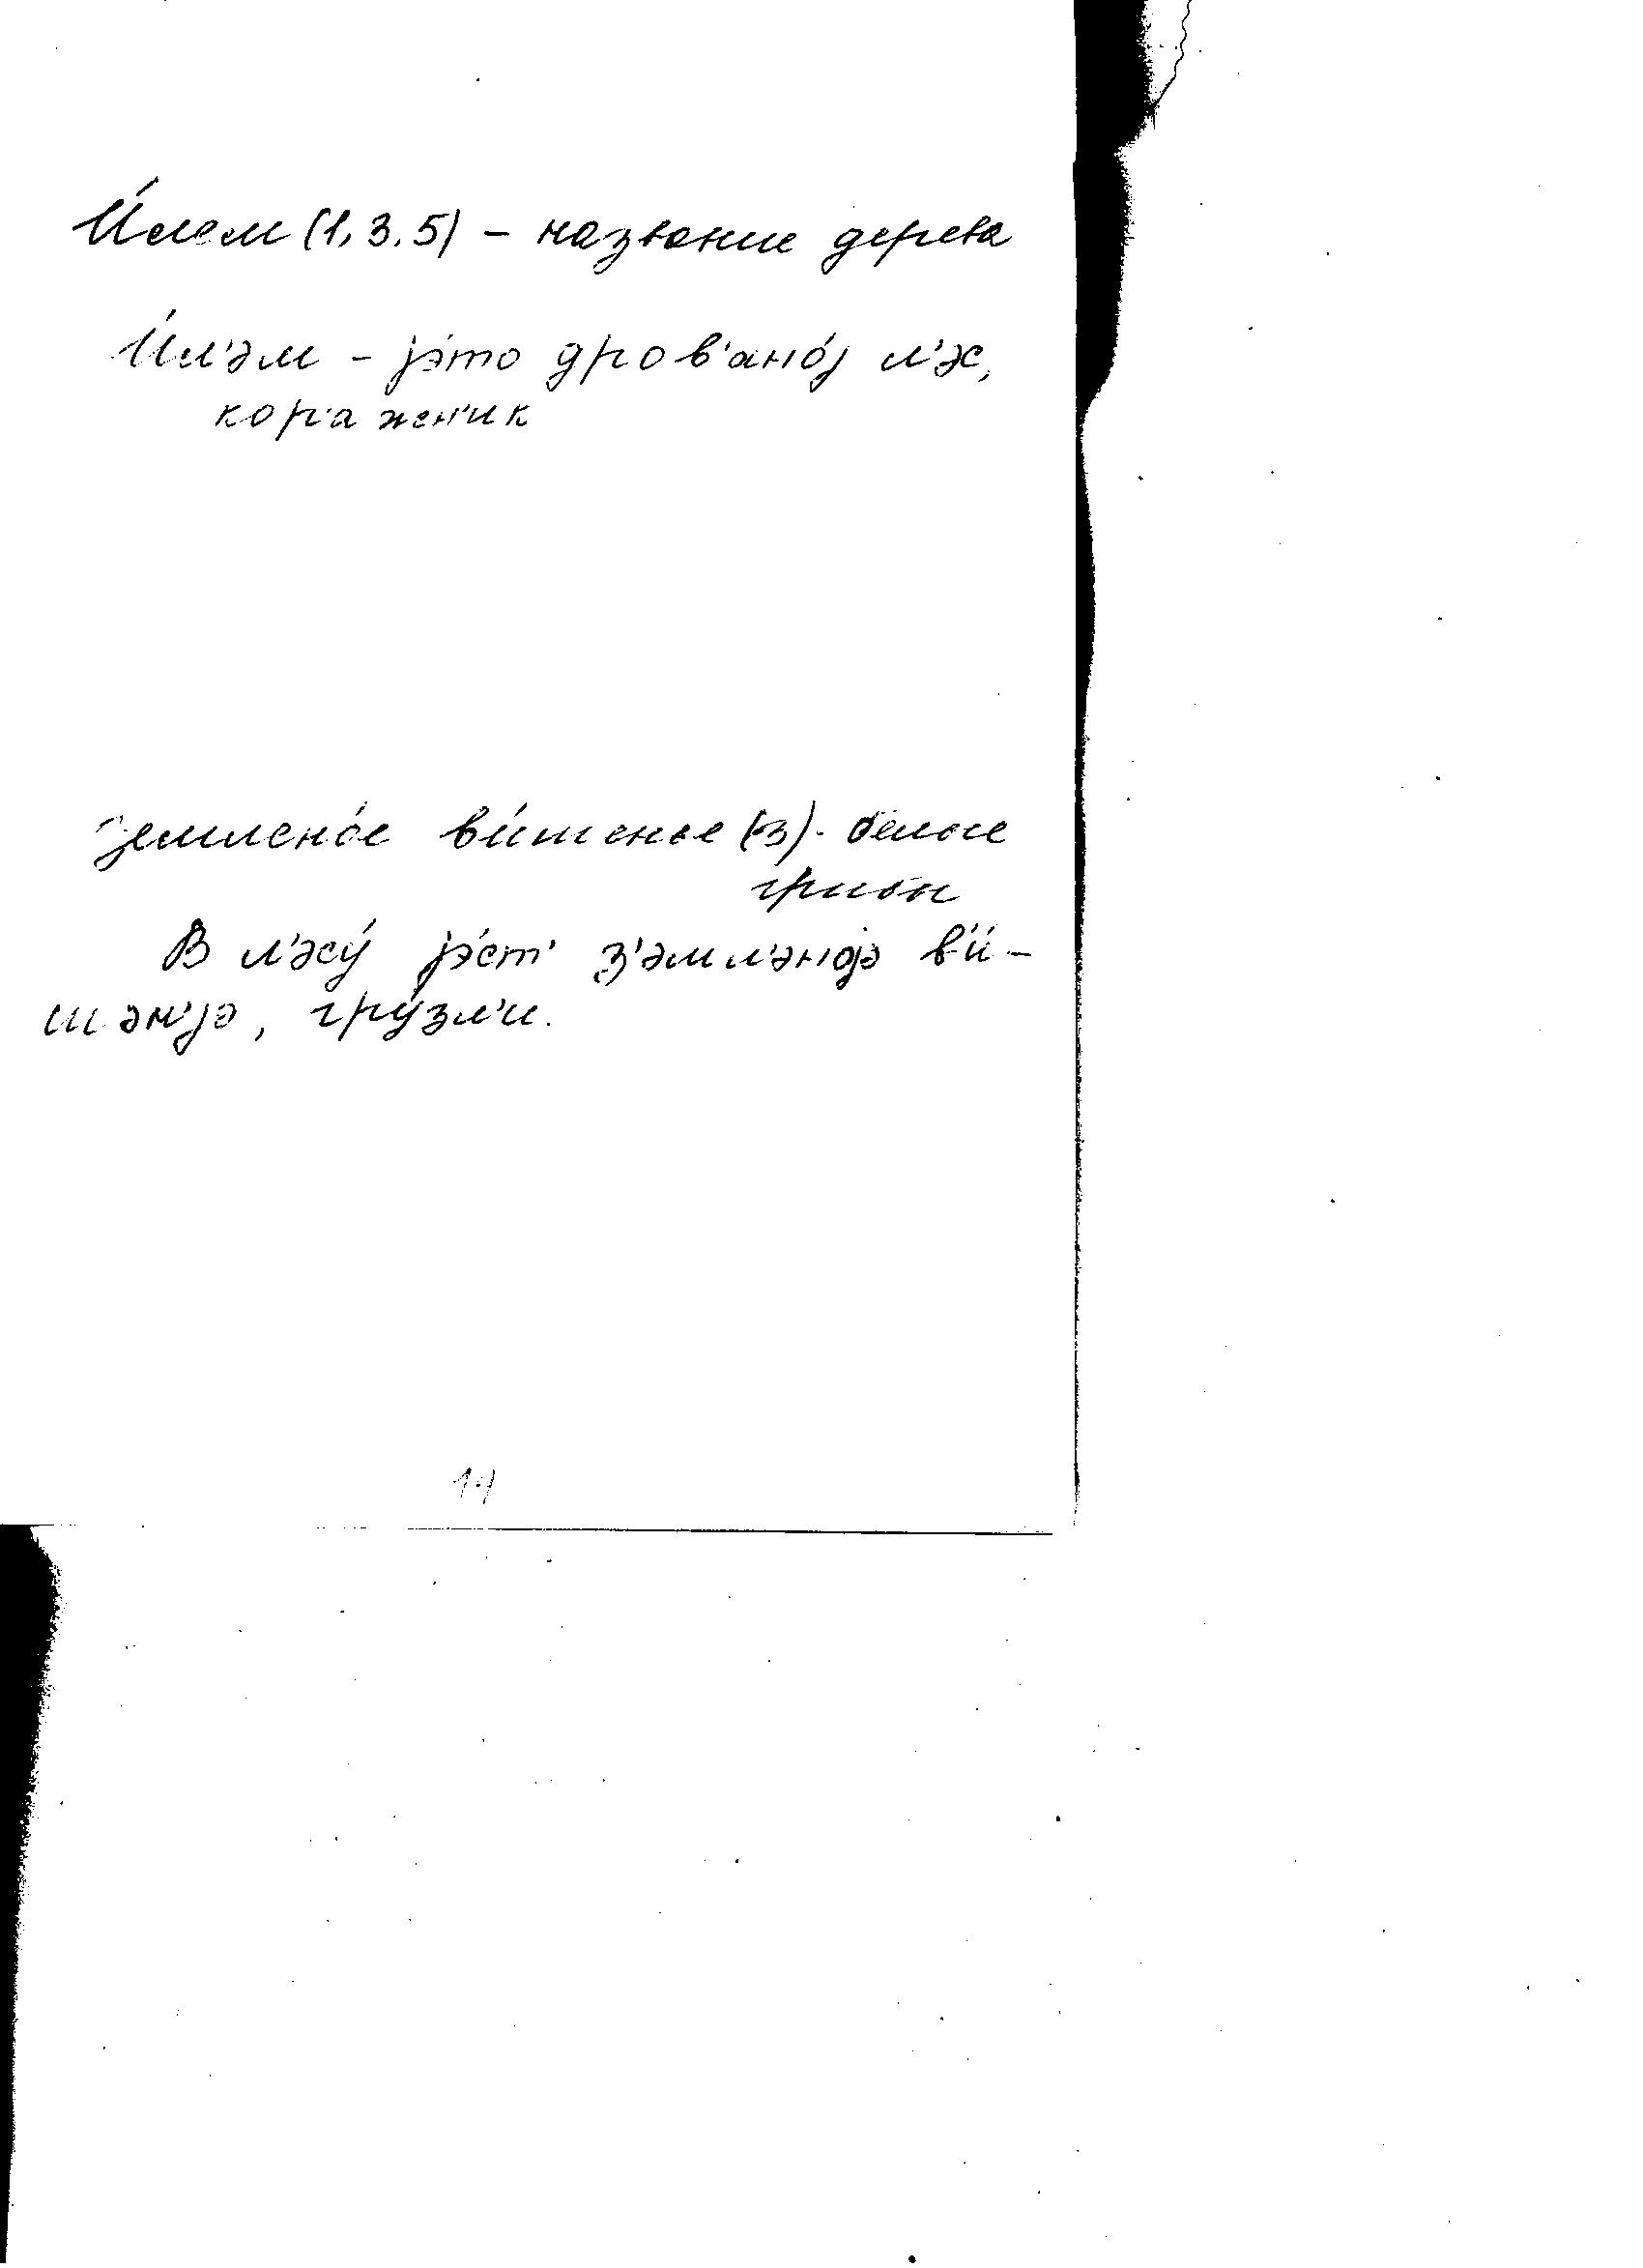 И́лем (1, 3, 5) – название дерева
И́л'әм – jэ́то дров'ано́j л'эс,
кор'а женик
Землено́е ви́шенье (3) - белые
грибы
В л'эсу́ jэ́ст' з'әмл'әноjә в'и́-
шән'jә, гру́зл'и.
14